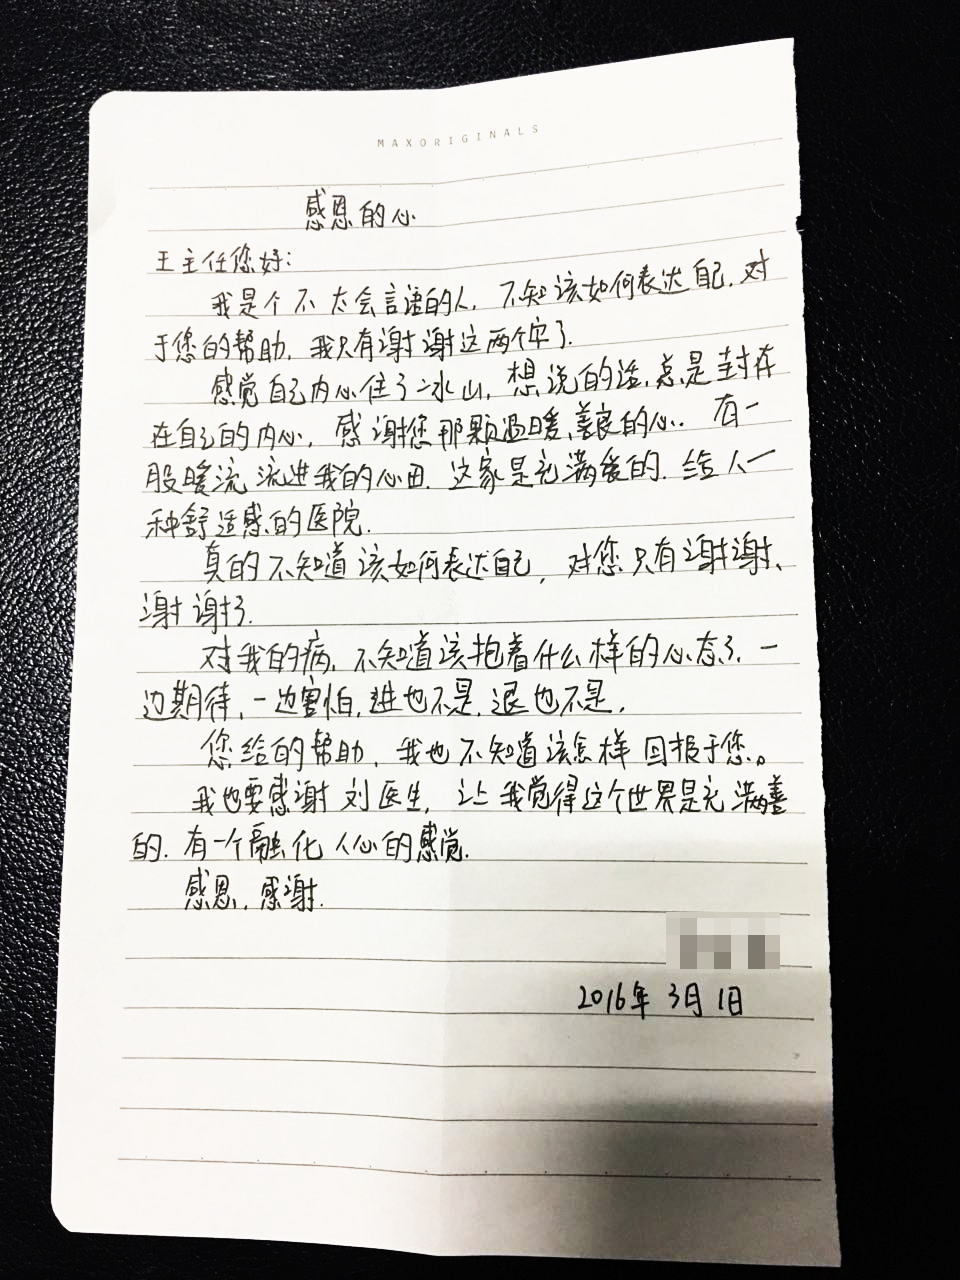 MAXORIGINALS
感恩的心
王主任您好:
我是个不太会言语的人,不知该如何表达自己,对
于您的帮助,我只有谢谢这两个字了.
感觉自己内心住了冰山,想说的话,总是封在
在自己的内心,感谢您那颗温暖、善良的心.有一
股暖流流进我的心田.这家是充满爱的.给人一
种舒适感的医院.
真的不知道该如何表达自己,对您只有谢谢、
谢谢了.
对我的病,不知道该抱着什么样的心态了,一
边期待,一边害怕,进也不是,退也不是,
您给的帮助,我也不知道该怎样回报于您。
我也要感谢刘医生,让我觉得这个世界是充满善
的.有一个融化人心的感觉.
感恩,感谢.
2016年3月1日